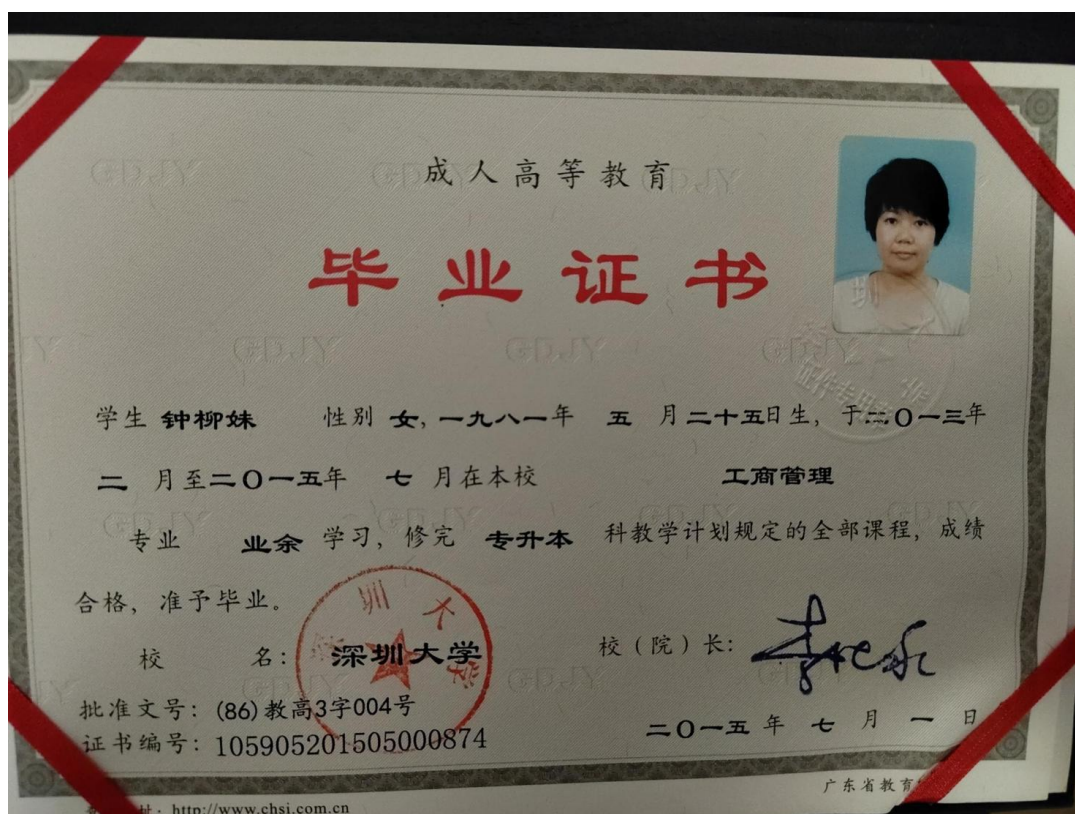 成人高等教育
毕业证书
学生 钟柳妹 性别 女，一九八一年 五 月二十五日生，于二〇一三年
二 月至二〇一五年 七 月在本校 工商管理
专业 业余 学习，修完 专升本 科教学计划规定的全部课程，成绩
合格，准予毕业。
校 名：深圳大学 校（院）长：
批准文号：(86)教高3字004号
证书编号：105905201505000874
二〇一五 年 七 月 一 日
广东省教育
http://www.chsi.com.cn
GDJY
证件专用章
圳大学